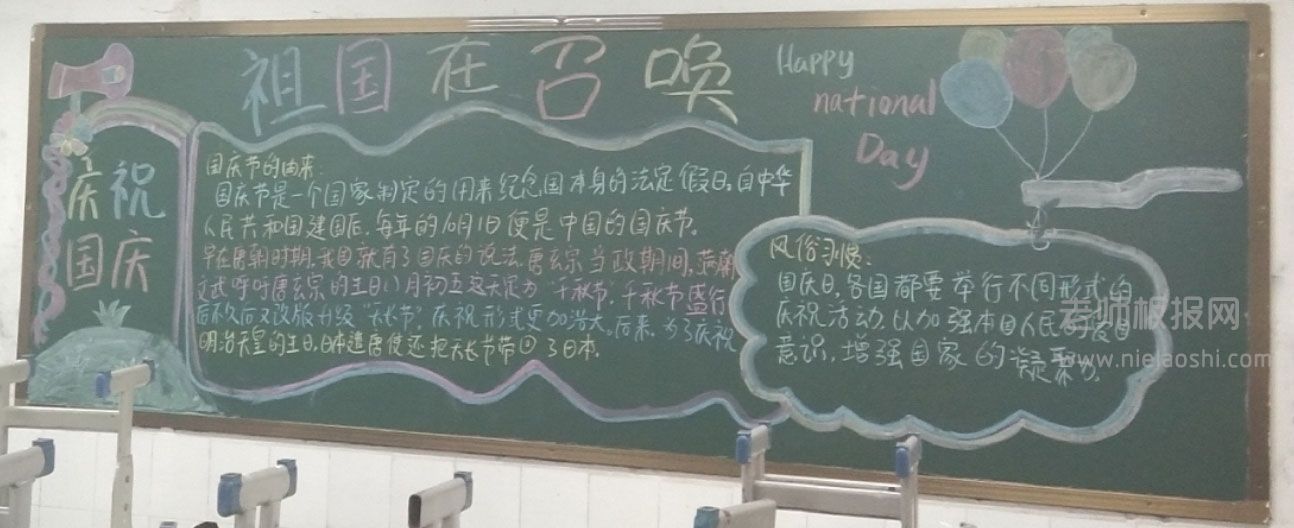 祖国在召唤
Happy
national
Day
庆祝
国庆
国庆节的由来:
国庆节是一个国家制定的用来纪念国本身的法定假日,自中华
人民共和国建国后,每年的10月1日便是中国的国庆节。
早在唐朝时期,我国就有了国庆的说法,唐玄宗当政期间,满朝
文武呼吁唐玄宗的生日八月初五这天定为“千秋节”,千秋节盛行
后不久后又改版升级“天长节”,庆祝形式更加浩大。后来,为了庆祝
明治天皇的生日,日本遣唐使还把天长节带回了日本.
风俗习惯:
国庆日,各国都要举行不同形式的
庆祝活动,以加强本国人民的爱国
意识,增强国家的凝聚力。
老师板报网
www.nielaoshi.com